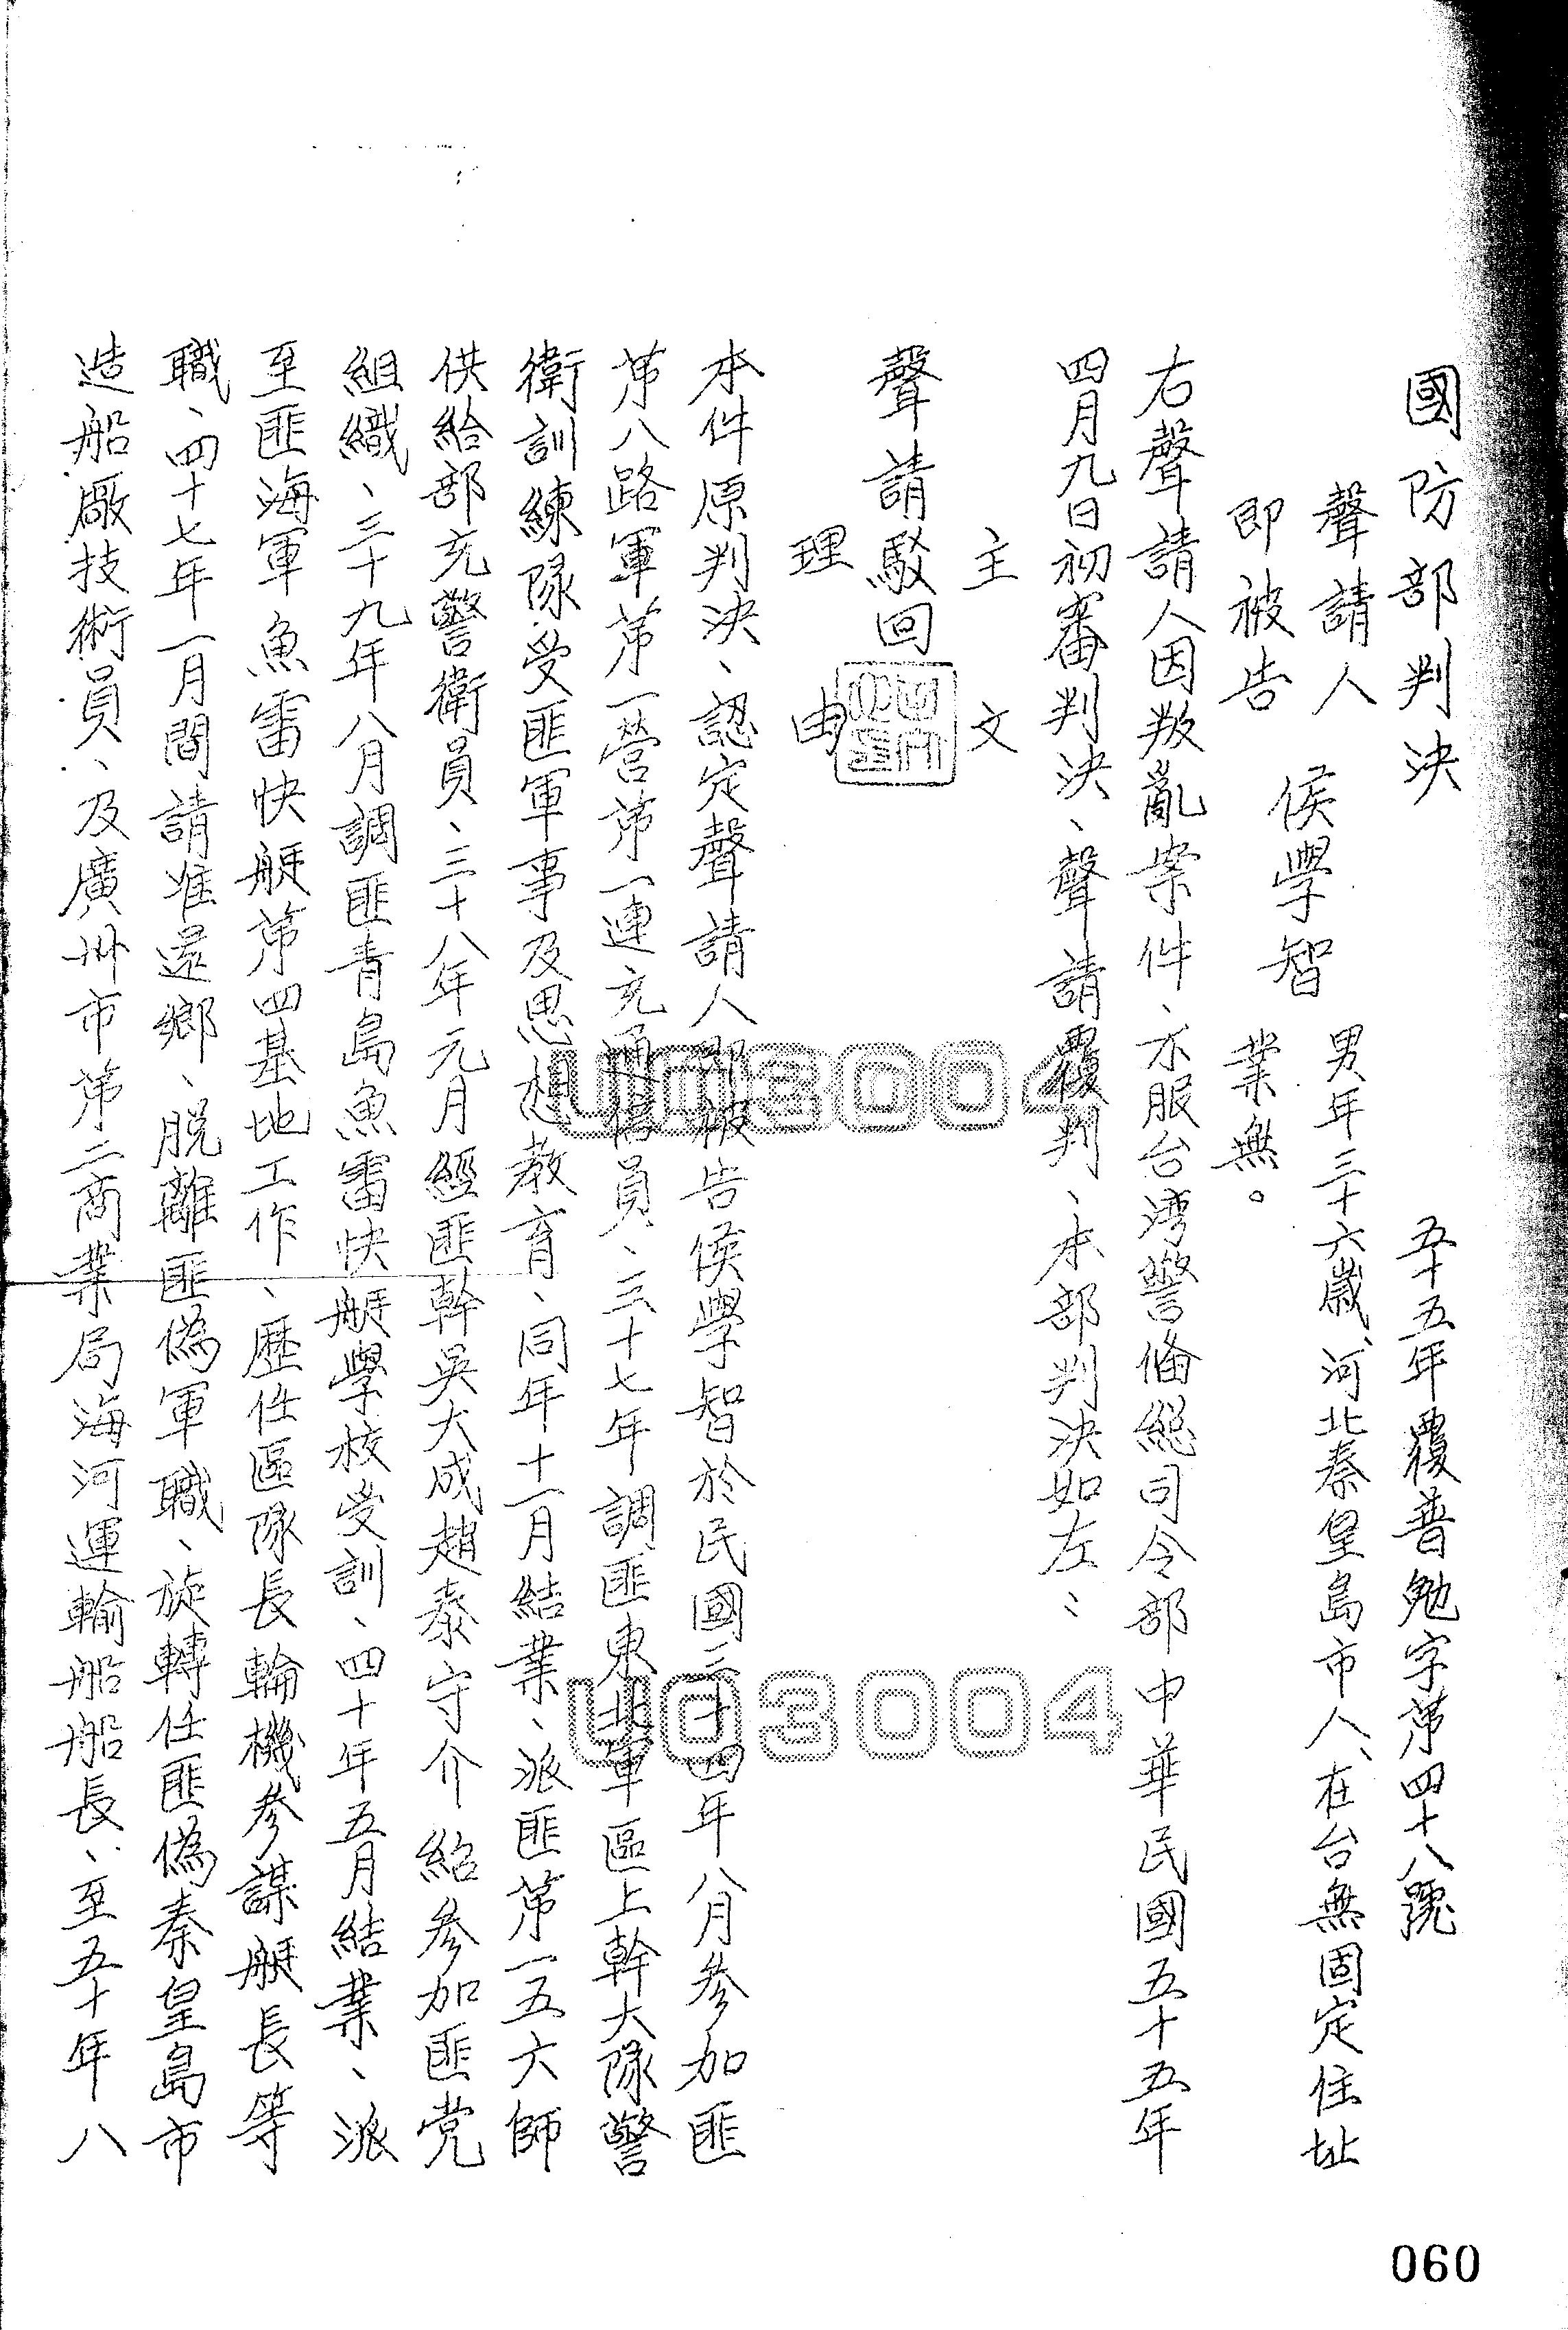 國防部判決
五十五年覆普勉字第四十八號
聲請人
即被告
侯學智
男年三十六歲、河北秦皇島市人、在台無固定住址
業無。
右聲請人因叛亂案件、不服台湾警俻総司令部中華民國五十五年
四月九日初審判決、聲請覆判、本部判決如左:
主文
聲請駁回
理由
本件原判決、認定聲請人即被告侯學智於民國三十四年八月參加匪
第八路軍第一營第一連充通信員、三十七年調匪東北軍區上幹大隊警
衛訓練隊受匪軍事及思想教育、同年十一月結業、派匪第一五六師
供給部充警衛員、三十八年元月經匪幹吳大成趙泰守介紹參加匪党
組織、三十九年八月調匪青島魚雷快艇學校受訓、四十年五月結業、派
至匪海軍魚雷快艇第四基地工作、歷任區隊長輪機參謀艇長等
職、四十七年一月間請准還鄉、脫離匪偽軍職、旋轉任匪偽秦皇島市
造船廠技術員、及廣州市第二商業局海河運輸船船長、至五十年八
UO3004
UO3004
060